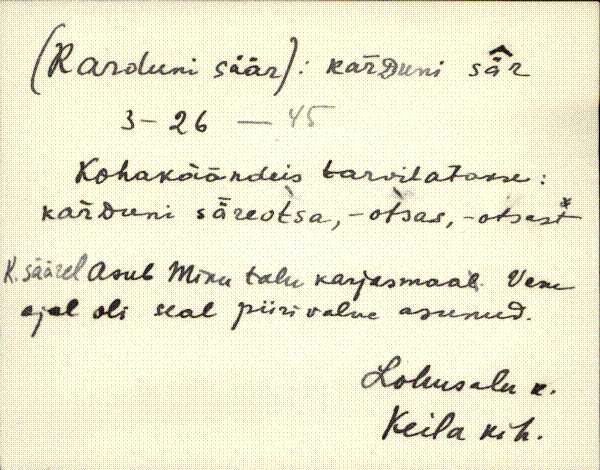 (Karduni säär): karduni sä̂r
3 – 26 — 45
Kohakäändeis tarvilatakse:
karduni säreotsa, -otsas, -otsast*
K. säärel Asub Miku talu karjasmaal. Vene
ajal oli seal piirivalve asunud.
Lohusalu k.
Keila kih.